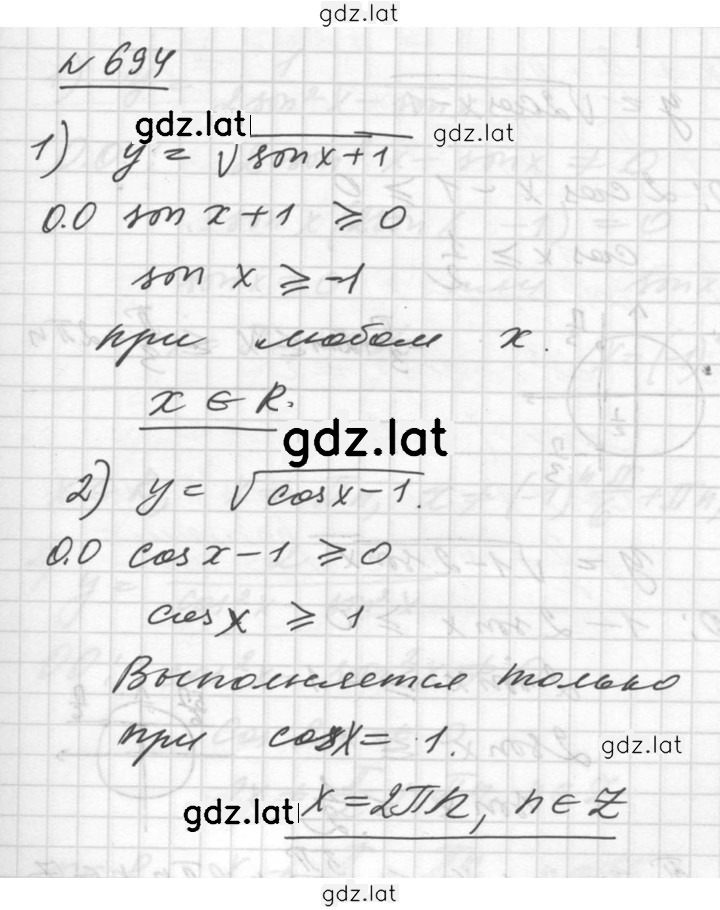 gdz.lat
№ 694
gdz.lat
1) y = √sin x + 1 gdz.lat
О.О sin x + 1 ⩾ 0
sin x ⩾ -1
при любом x.
x ∈ R.
gdz.lat
2) y = √cos x - 1.
О.О cos x - 1 ⩾ 0
cos x ⩾ 1
Выполняется только
при cos x = 1.
gdz.lat
gdz.lat x = 2πn, n ∈ Z
gdz.lat